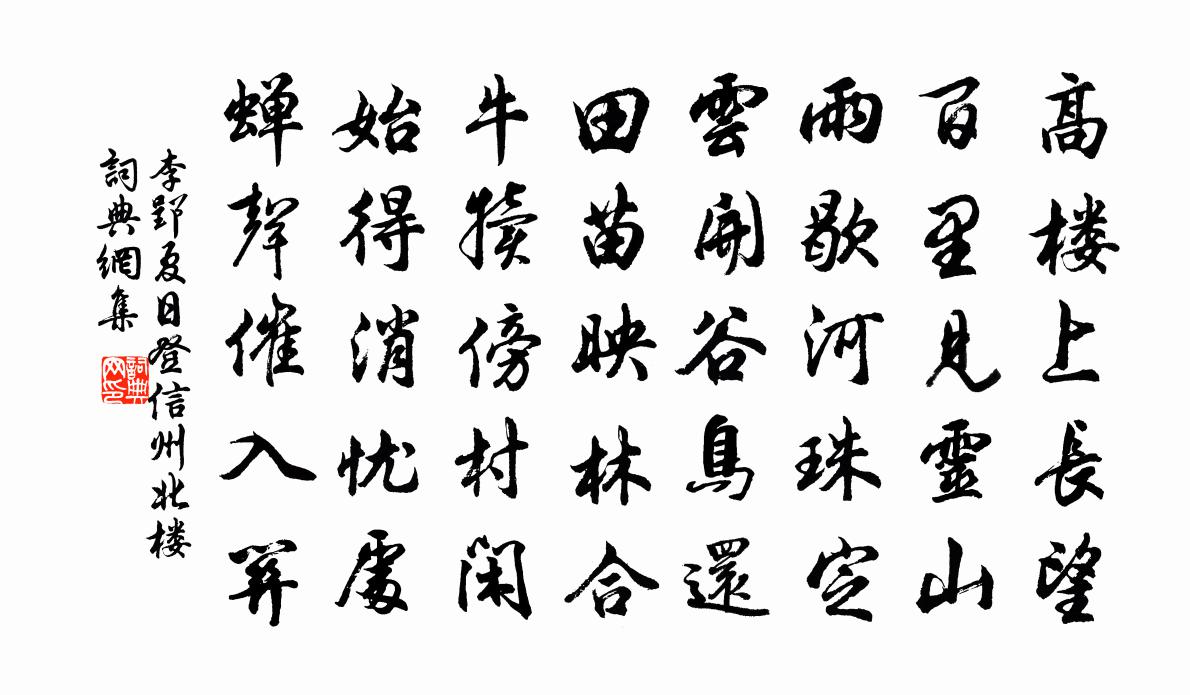 高楼上長望
百里見靈山
雨歇河珠定
雲開谷鳥還
田苗映林合
牛犢傍村閑
始得消忧處
蝉聲催入關
李郢夏日登信州北楼
詞典網集
詞典网印